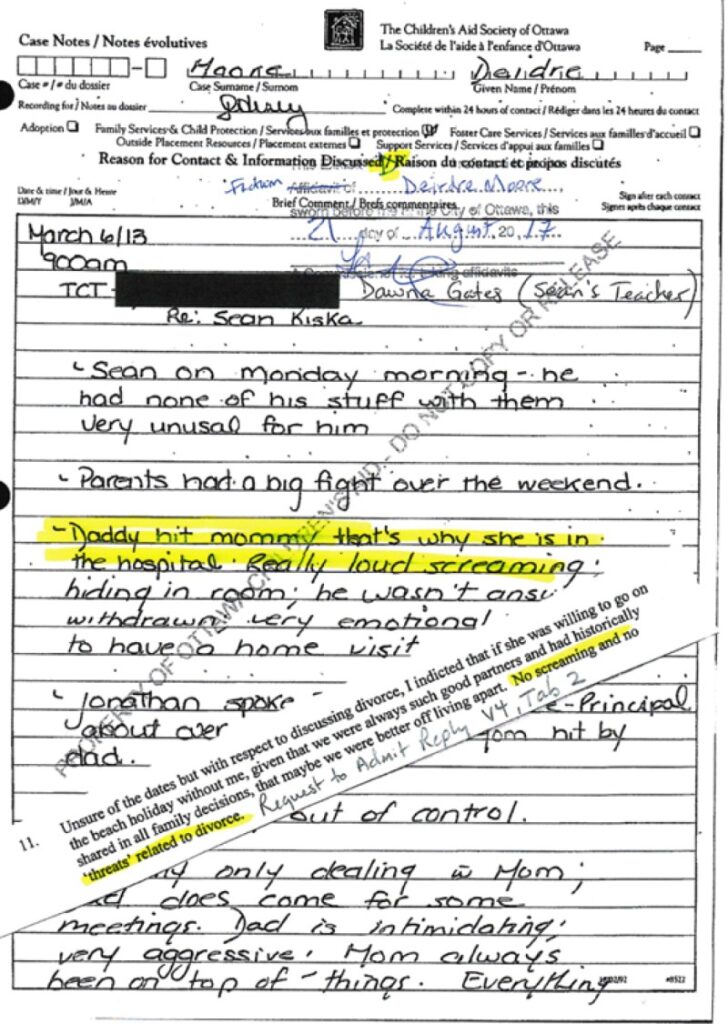 The Children's Aid Society of Ottawa
La Société de l'aide à l'enfance d'Ottawa
Case Notes / Notes évolutives
Page
Moore Deidre
Case # / # du dossier Case Surname / Surnom Given Name / Prénom
Recording for / Notes au dossier Complete within 24 hours of contact / Rédiger dans les 24 heures du contact
Adoption Family Services & Child Protection / Services aux familles et protection Foster Care Services / Services aux familles d'accueil
Outside Placement Resources / Placement externes Support Services / Services d'appui aux familles
Reason for Contact & Information Discussed / Raison du contact et propos discutés
Affidavit of Deirdre Moore
Date & time / Jour & Heure
D/M/Y J/M/A
Brief Comment / Brefs commentaires
Sign after each contact
Signes après chaque contact
sworn before me in the City of Ottawa, this
21 day of August 2017
A Commissioner for taking affidavits
March 6/13
900am
TCT - Dawna Gates (Sean's Teacher)
Re: Sean Kiska
- Sean on Monday morning - he
had none of his stuff with them
very unusal for him
- Parents had a big fight over the weekend.
- Daddy hit mommy that's why she is in
the hospital. Really loud screaming;
hiding in room; he wasn't
withdrawn very emotional
to have a home visit
- Jonathan spoke
-Principal
about over
hit by
dad.
11. Unsure of the dates but with respect to discussing divorce, I indicted that if she was willing to go on
the beach holiday without me, given that we were always such good partners and had historically
shared in all family decisions, that maybe we were better off living apart. No screaming and no
'threats' related to divorce. Request to Admit Reply V4, Tab 2
out of control.
only dealing w Mom;
does come for some
meetings. Dad is intimidating;
very aggressive. Mom always
been on top of - things. Everything
PROPERTY OF OTTAWA CHILDREN'S AID - DO NOT COPY OR RELEASE